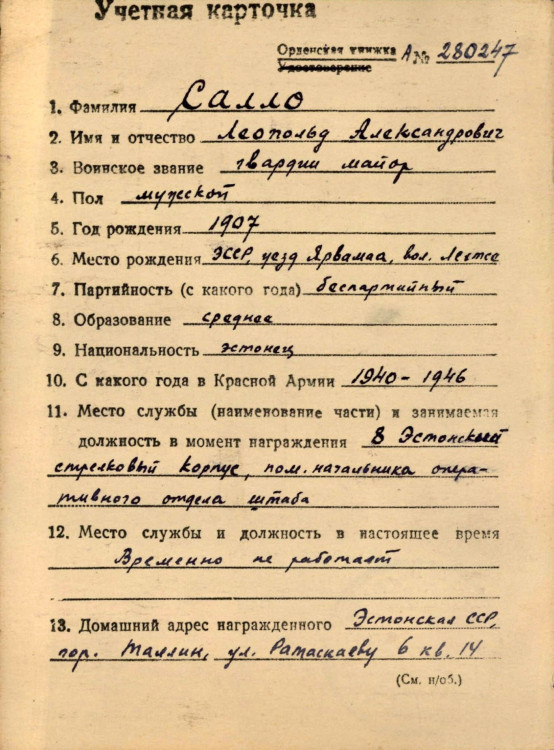 Учетная карточка
Орденская книжка А № 280247
Удостоверение
1. Фамилия Салло
2. Имя и отчество Леопольд Александрович
3. Воинское звание гвардии майор
4. Пол мужской
5. Год рождения 1907
6. Место рождения ЭССР, уезд Ярвамаа, вол. Лехтсе
7. Партийность (с какого года) беспартийный
8. Образование среднее
9. Национальность эстонец
10. С какого года в Красной Армии 1940-1946
11. Место службы (наименование части) и занимаемая
должность в момент награждения 8 Эстонский
стрелковый корпус, пом. начальника опера-
тивного отдела штаба
12. Место службы и должность в настоящее время
Временно не работает
13. Домашний адрес награжденного Эстонская ССР,
гор. Таллин, ул. Ратаскаеву 6 кв. 14
(См. н/об.)